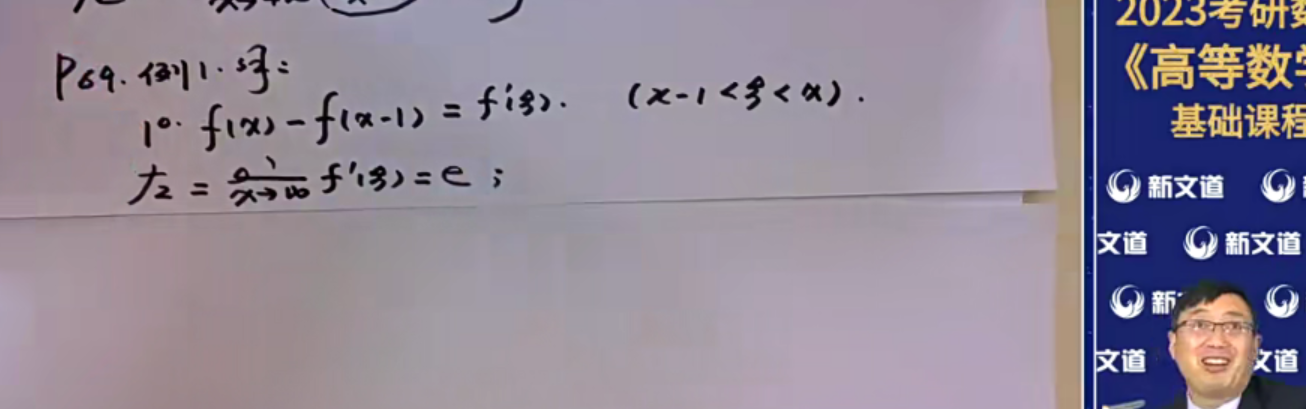 P69. 例1. 解:
1°. f(x) - f(x-1) = f'(ξ). (x-1<ξ<x).
右 = lim x→∞ f'(ξ) = e ;
2023考研数
《高等数学
基础课程
新文道
文道 新文道
新
文道 文道